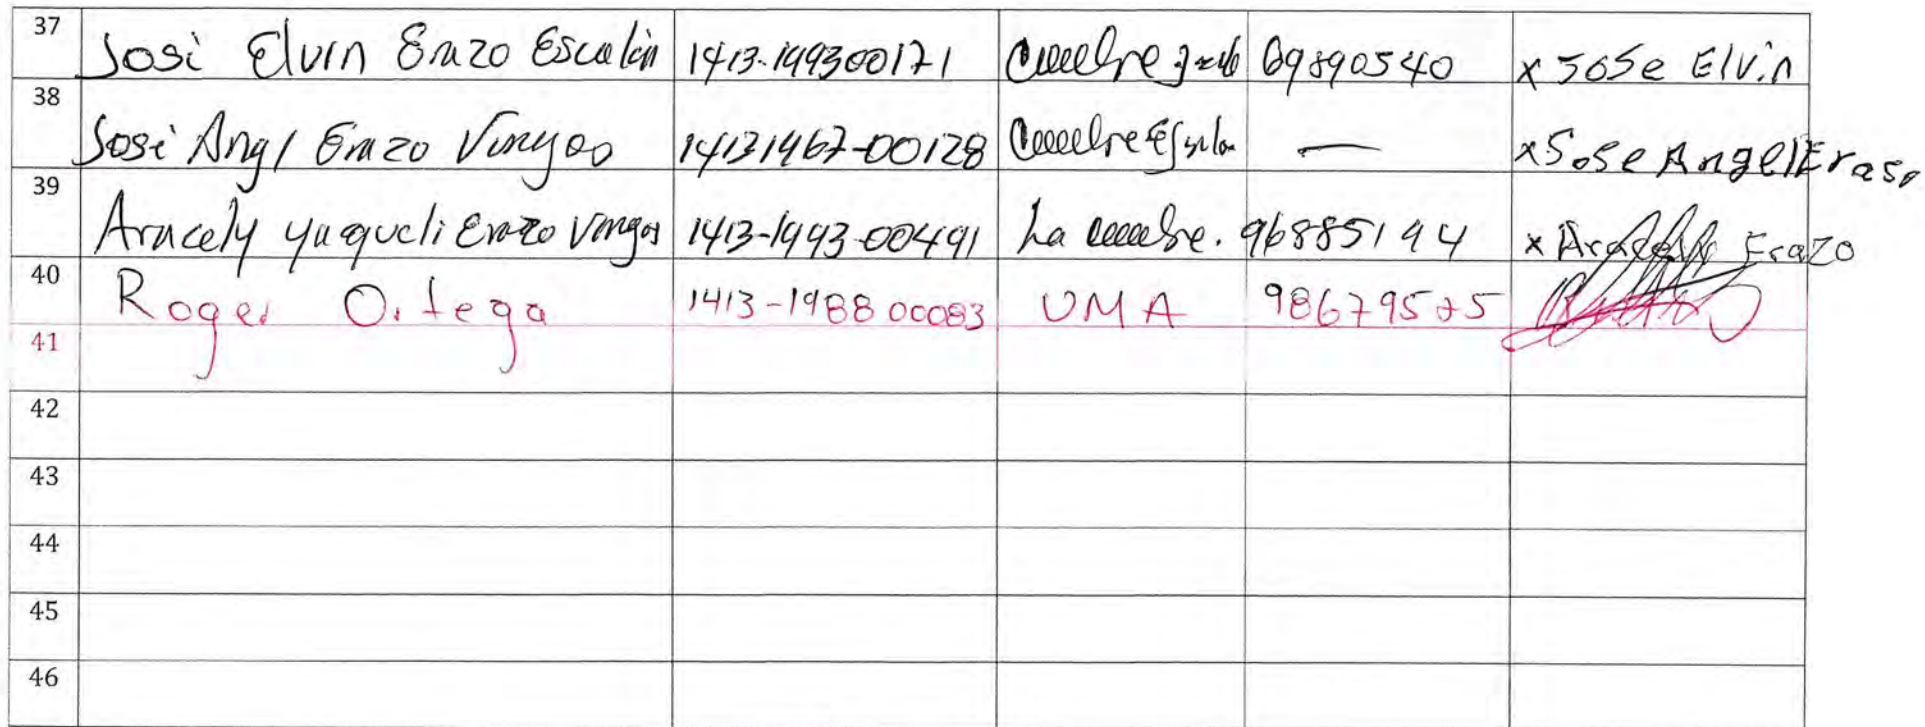 37 José Elvin Erazo Escalón 1413-199300171 Cumbre 69890540 x Jose Elvin
38 José Angl Erazo Vargas 14131967-00128 Cumbre — x Jose Angel Eraso
39 Aracely Yaqueli Erazo Vargas 1413-1993-00491 La cumbre. 96885194 x Aracely Erazo
40 Roger Ortega 1413-1988 00083 UMA 98679575
41
42
43
44
45
46